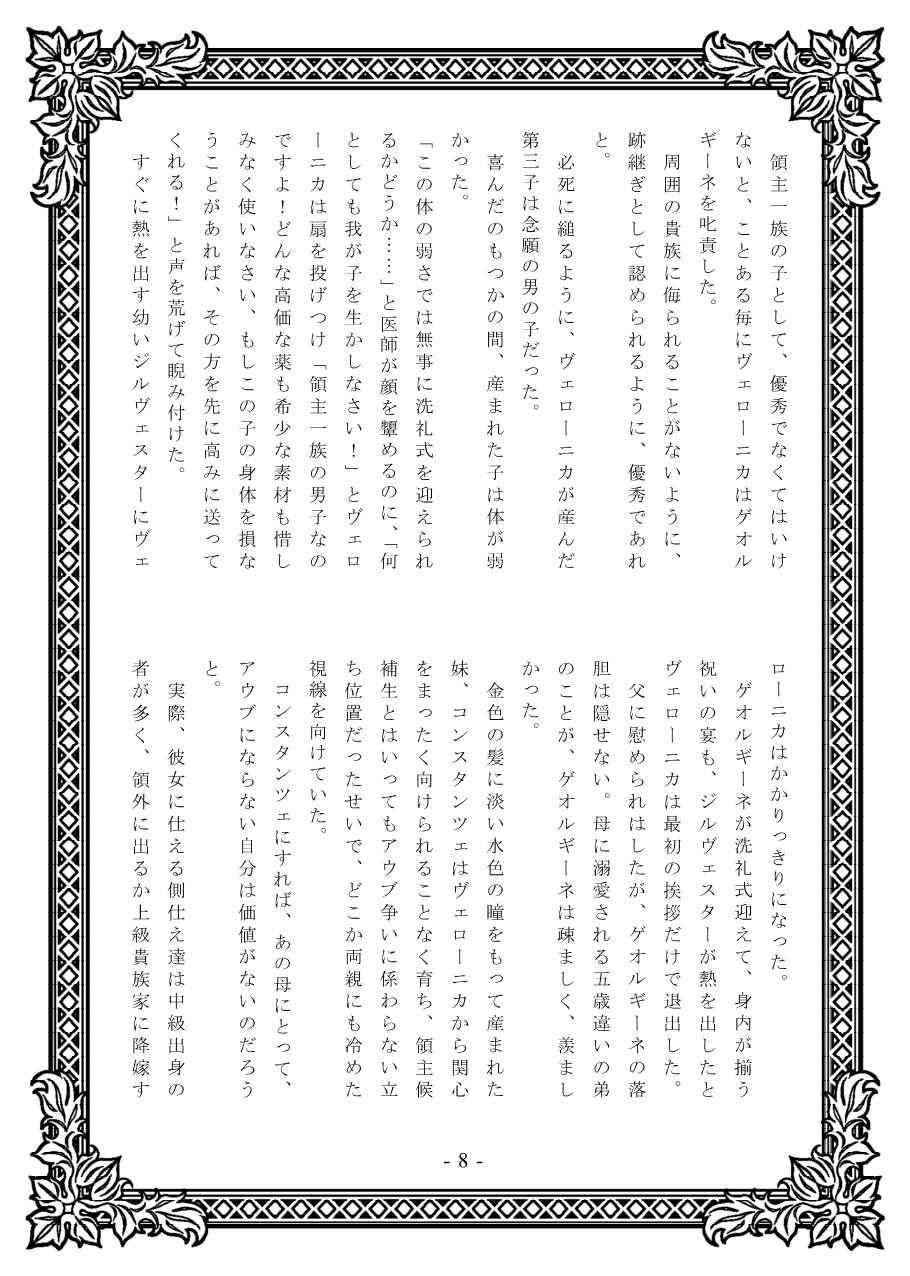 領主一族の子として、優秀でなくてはいけ
ないと、ことある毎にヴェローニカはゲオル
ギーネを叱責した。
　周囲の貴族に侮られることがないように、
跡継ぎとして認められるように、優秀であれ
と。
　必死に縋るように、ヴェローニカが産んだ
第三子は念願の男の子だった。
　喜んだのもつかの間、産まれた子は体が弱
かった。
「この体の弱さでは無事に洗礼式を迎えられ
るかどうか……」と医師が顔を顰めるのに、「何
としても我が子を生かしなさい！」とヴェロ
ーニカは扇を投げつけ「領主一族の男子なの
ですよ！どんな高価な薬も希少な素材も惜し
みなく使いなさい、もしこの子の身体を損な
うことがあれば、その方を先に高みに送って
くれる！」と声を荒げて睨み付けた。
　すぐに熱を出す幼いジルヴェスターにヴェ
ローニカはかかりっきりになった。
　ゲオルギーネが洗礼式迎えて、身内が揃う
祝いの宴も、ジルヴェスターが熱を出したと
ヴェローニカは最初の挨拶だけで退出した。
　父に慰められはしたが、ゲオルギーネの落
胆は隠せない。母に溺愛される五歳違いの弟
のことが、ゲオルギーネは疎ましく、羨まし
かった。
　金色の髪に淡い水色の瞳をもって産まれた
妹、コンスタンツェはヴェローニカから関心
をまったく向けられることなく育ち、領主候
補生とはいってもアウブ争いに係わらない立
ち位置だったせいで、どこか両親にも冷めた
視線を向けていた。
　コンスタンツェにすれば、あの母にとって、
アウブにならない自分は価値がないのだろう
と。
　実際、彼女に仕える側仕え達は中級出身の
者が多く、領外に出るか上級貴族家に降嫁す
- 8 -